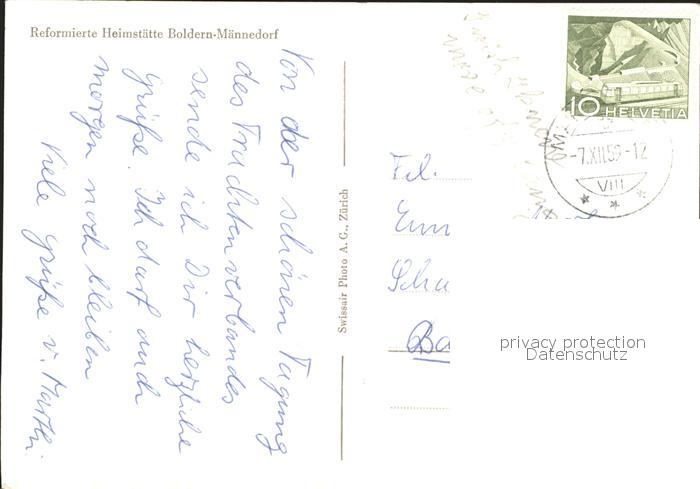 Reformierte Heimstätte Boldern-Männedorf
Von der schönen Tagung
des Trachtenverbandes
sende ich Dir herzliche
Grüße. Ich darf auch
morgen noch bleiben
Viele Grüße v. Marthi.
Swissair Photo A. G., Zürich
10 HELVETIA
-7.XII.59-12
VIII
Frl.
Em
Scha
Ba
privacy protection
Datenschutz